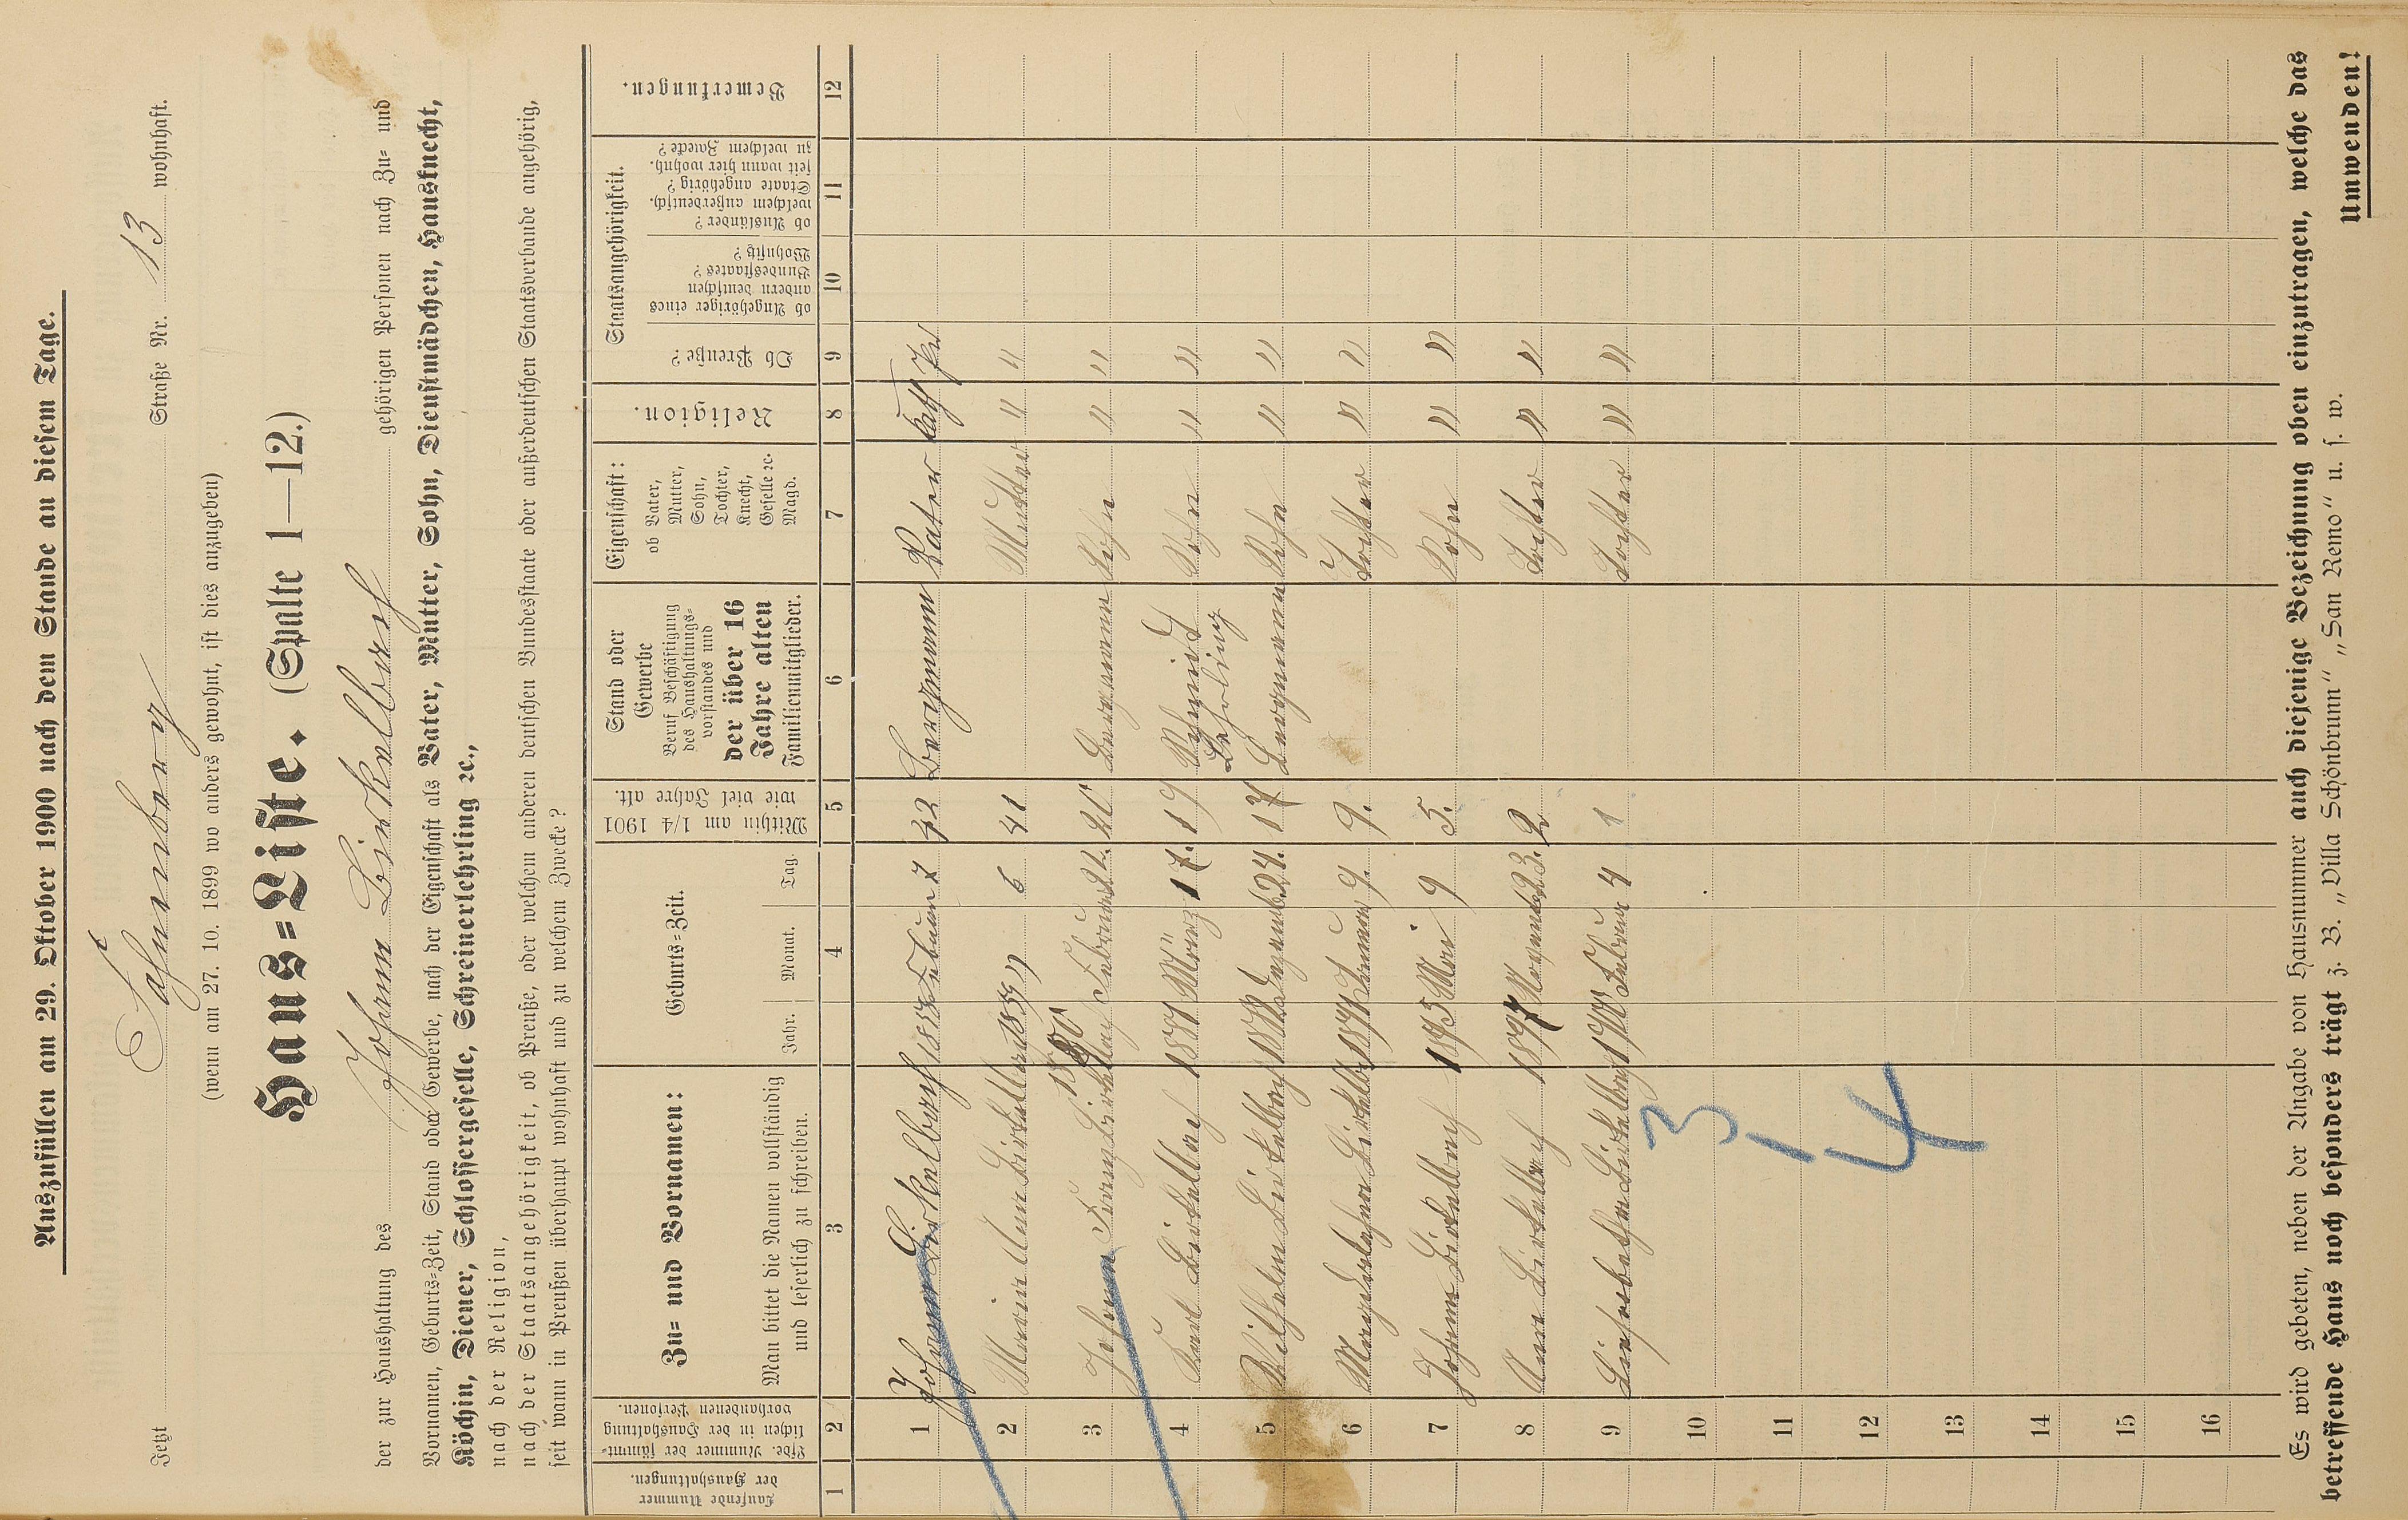 Auszufüllen am 29. Oktober 1900 nach dem Stande an diesem Tage.
Jetzt Straße Nr. 13 wohnhaft.
(wenn am 27. 10. 1899 wo anders gewohnt, ist dies anzugeben)
Haus=Liste. (Spalte 1—12.)
der zur Haushaltung des Johann Birkelbach gehörigen Personen nach Zu= und
Vornamen, Geburts=Zeit, Stand oder Gewerbe, nach der Eigenschaft als Vater, Mutter, Sohn, Dienstmädchen, Hausknecht,
Köchin, Diener, Schlossergeselle, Schreinerlehrling ꝛc.,
nach der Religion,
nach der Staatsangehörigkeit, ob Preuße, oder welchem anderen deutschen Bundesstaate oder außerdeutschen Staatsverbande angehörig,
seit wann in Preußen überhaupt wohnhaft und zu welchem Zwecke?
Laufende Nummer der Haushaltungen.
Lfde. Nummer der sämmt=lichen in der Haushaltung vorhandenen Personen.
Zu= und Vornamen:
Man bittet die Namen vollständig
und leserlich zu schreiben.
Geburts=Zeit.
Jahr. Monat. Tag.
Mithin am 1/4 1901
wie viel Jahre alt.
Stand oder
Gewerbe
Beruf Beschäftigung
des Haushaltungs=
vorstandes und
der über 16
Jahre alten
Familienmitglieder.
Eigenschaft:
ob Vater,
Mutter,
Sohn,
Tochter,
Knecht,
Geselle ꝛc.
Magd.
Religion.
Staatsangehörigkeit.
Ob Preuße?
ob Angehöriger eines
andern deutschen
Bundesstaates?
Wohnsitz?
ob Ausländer?
welchem außerdeutsch.
Staate angehörig?
seit wann hier wohnh.
zu welchem Zwecke?
Bemerkungen.
1 2 3 4 5 6 7 8 9 10 11 12
1 Johann Birkelbach Februar 7 42 Bergmann Vater kath Pr
2 Maria Birkelbach " 6 41 Mutter " "
3 Johann Birkelbach 1880 Februar 20 Bergmann Sohn " "
4 Karl Birkelbach 1881 März 17. 19 Schmied Lehrling Sohn " "
5 Wilhelm Birkelbach Dezemb 24. 17 Bergmann Sohn " "
6 Birkelb Januar 9. 9. Tochter " "
7 Johann Birkelbach 1895 Mai 9 5. Sohn " "
8 Anna Birkelbach 1897 Novemb 23. 2 Tochter " "
9 Birkelbach 1900 Februar 4 1 Tochter " "
10
11
12
13
14
15
16
3
1
4
Es wird gebeten, neben der Angabe von Hausnummer auch diejenige Bezeichnung oben einzutragen, welche das
betreffende Haus noch besonders trägt z. B. „Villa Schönbrunn“ „San Remo“ u. s. w.
Umwenden!